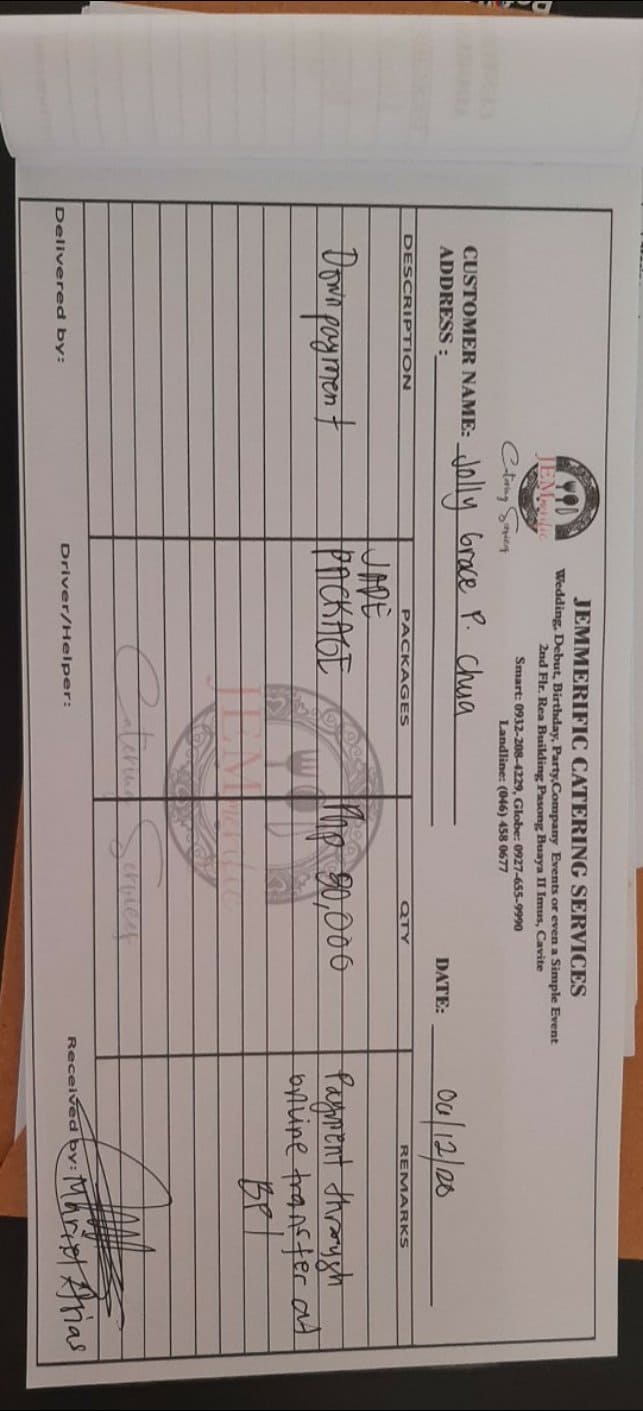 JEMMERIFIC CATERING SERVICES
Wedding, Debut, Birthday, Party,Company Events or even a Simple Event
2nd Flr. Rea Building Pasong Buaya II Imus, Cavite
Smart: 0932-208-4229, Globe: 0927-655-9990
Landline: (046) 458 0677
JEMmerific
Catering Services
CUSTOMER NAME: Jolly Grace P. Chua
ADDRESS :
DATE: /12/20
DESCRIPTION PACKAGES QTY REMARKS
JADE
Downpayment PACKAGE Php 30,000 Payment through
online transfer at
BPI
JEMmerific
Catering Services
Delivered by: Driver/Helper: Received by: Arias